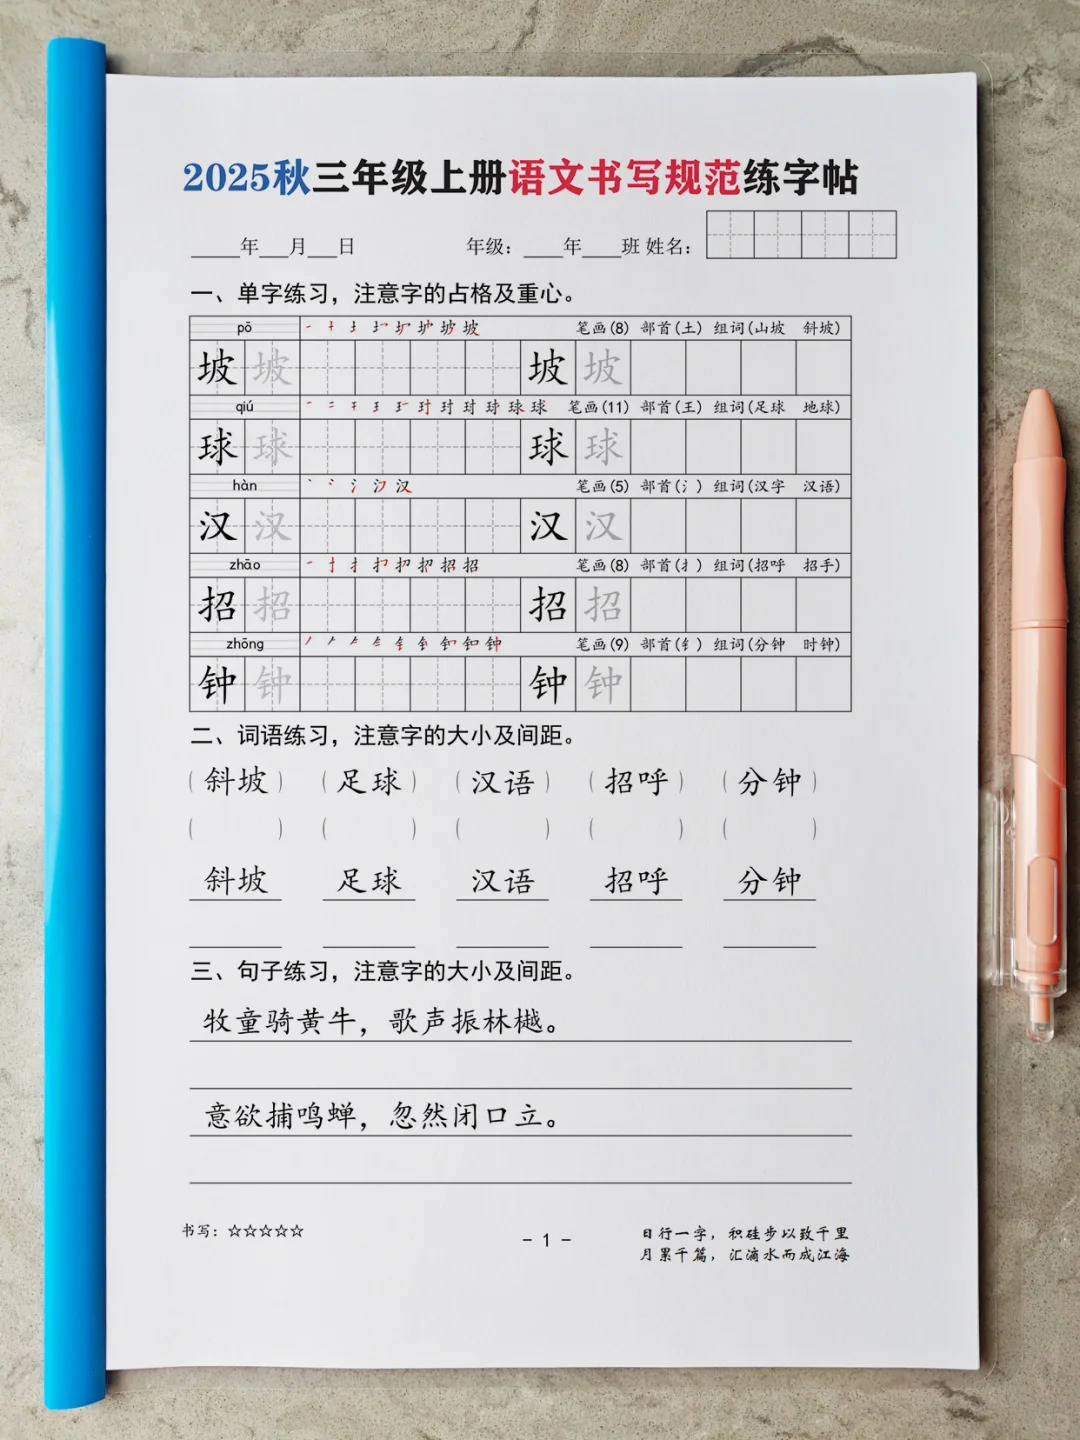 2025秋三年级上册语文书写规范练字帖
____年__月__日 年级：___年___班 姓名：
一、单字练习，注意字的占格及重心。
pō 笔画(8) 部首(土) 组词(山坡 斜坡)
坡 坡 坡 坡
qiú 笔画(11) 部首(王) 组词(足球 地球)
球 球 球 球
hàn 笔画(5) 部首(氵) 组词(汉字 汉语)
汉 汉 汉 汉
zhāo 笔画(8) 部首(扌) 组词(招呼 招手)
招 招 招 招
zhōng 笔画(9) 部首(钅) 组词(分钟 时钟)
钟 钟 钟 钟
二、词语练习，注意字的大小及间距。
(斜坡) (足球) (汉语) (招呼) (分钟)
( ) ( ) ( ) ( ) ( )
斜坡 足球 汉语 招呼 分钟
三、句子练习，注意字的大小及间距。
牧童骑黄牛，歌声振林樾。
意欲捕鸣蝉，忽然闭口立。
书写：☆☆☆☆☆
- 1 -
日行一字，积硅步以致千里
月累千篇，汇滴水而成江海